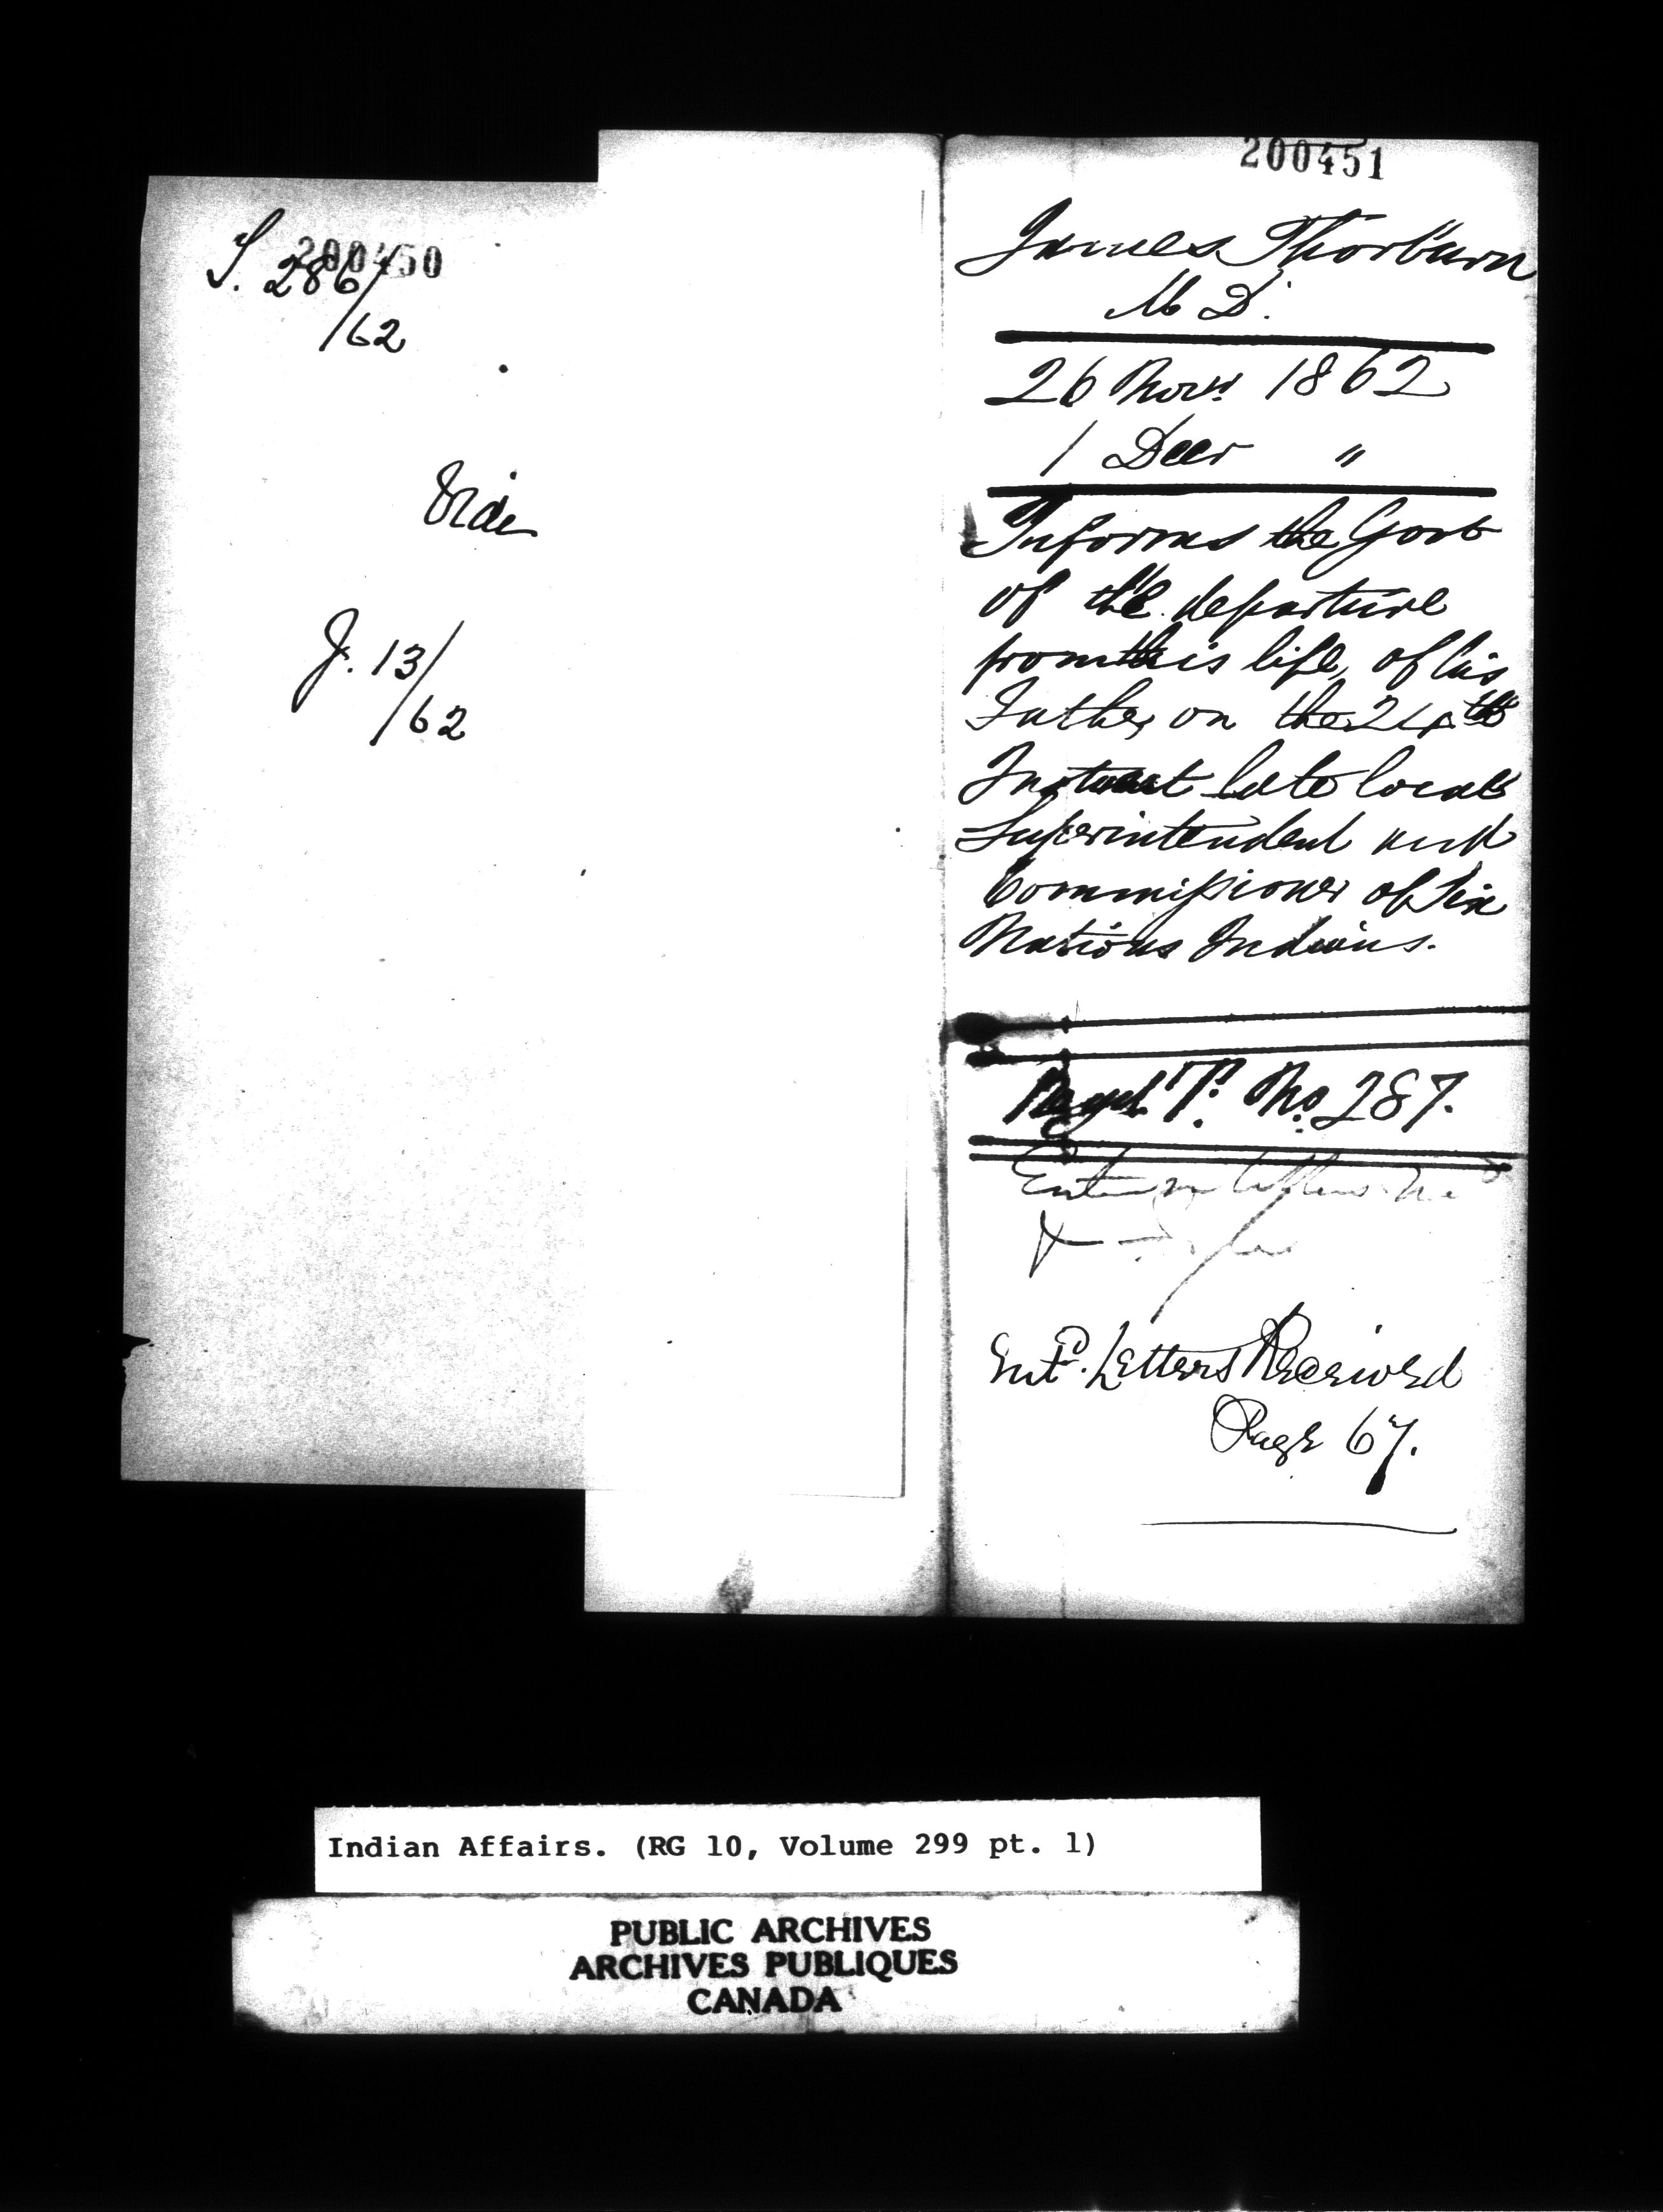 200450
S. 286/
/62
Vide
J. 13/
/62
200451
James Thorburn
M D.
26 Novr. 1862
1 Decr "
Informs the Govt
of the departure
from this life, of his
Father on the 24th
Instant late local
Superintendent and
Commissioner of Six
Nations Indians.
Regd. T. No. 287.
Entd. Letters Received
Page 67.
Indian Affairs. (RG 10, Volume 299 pt. 1)
PUBLIC ARCHIVES
ARCHIVES PUBLIQUES
CANADA